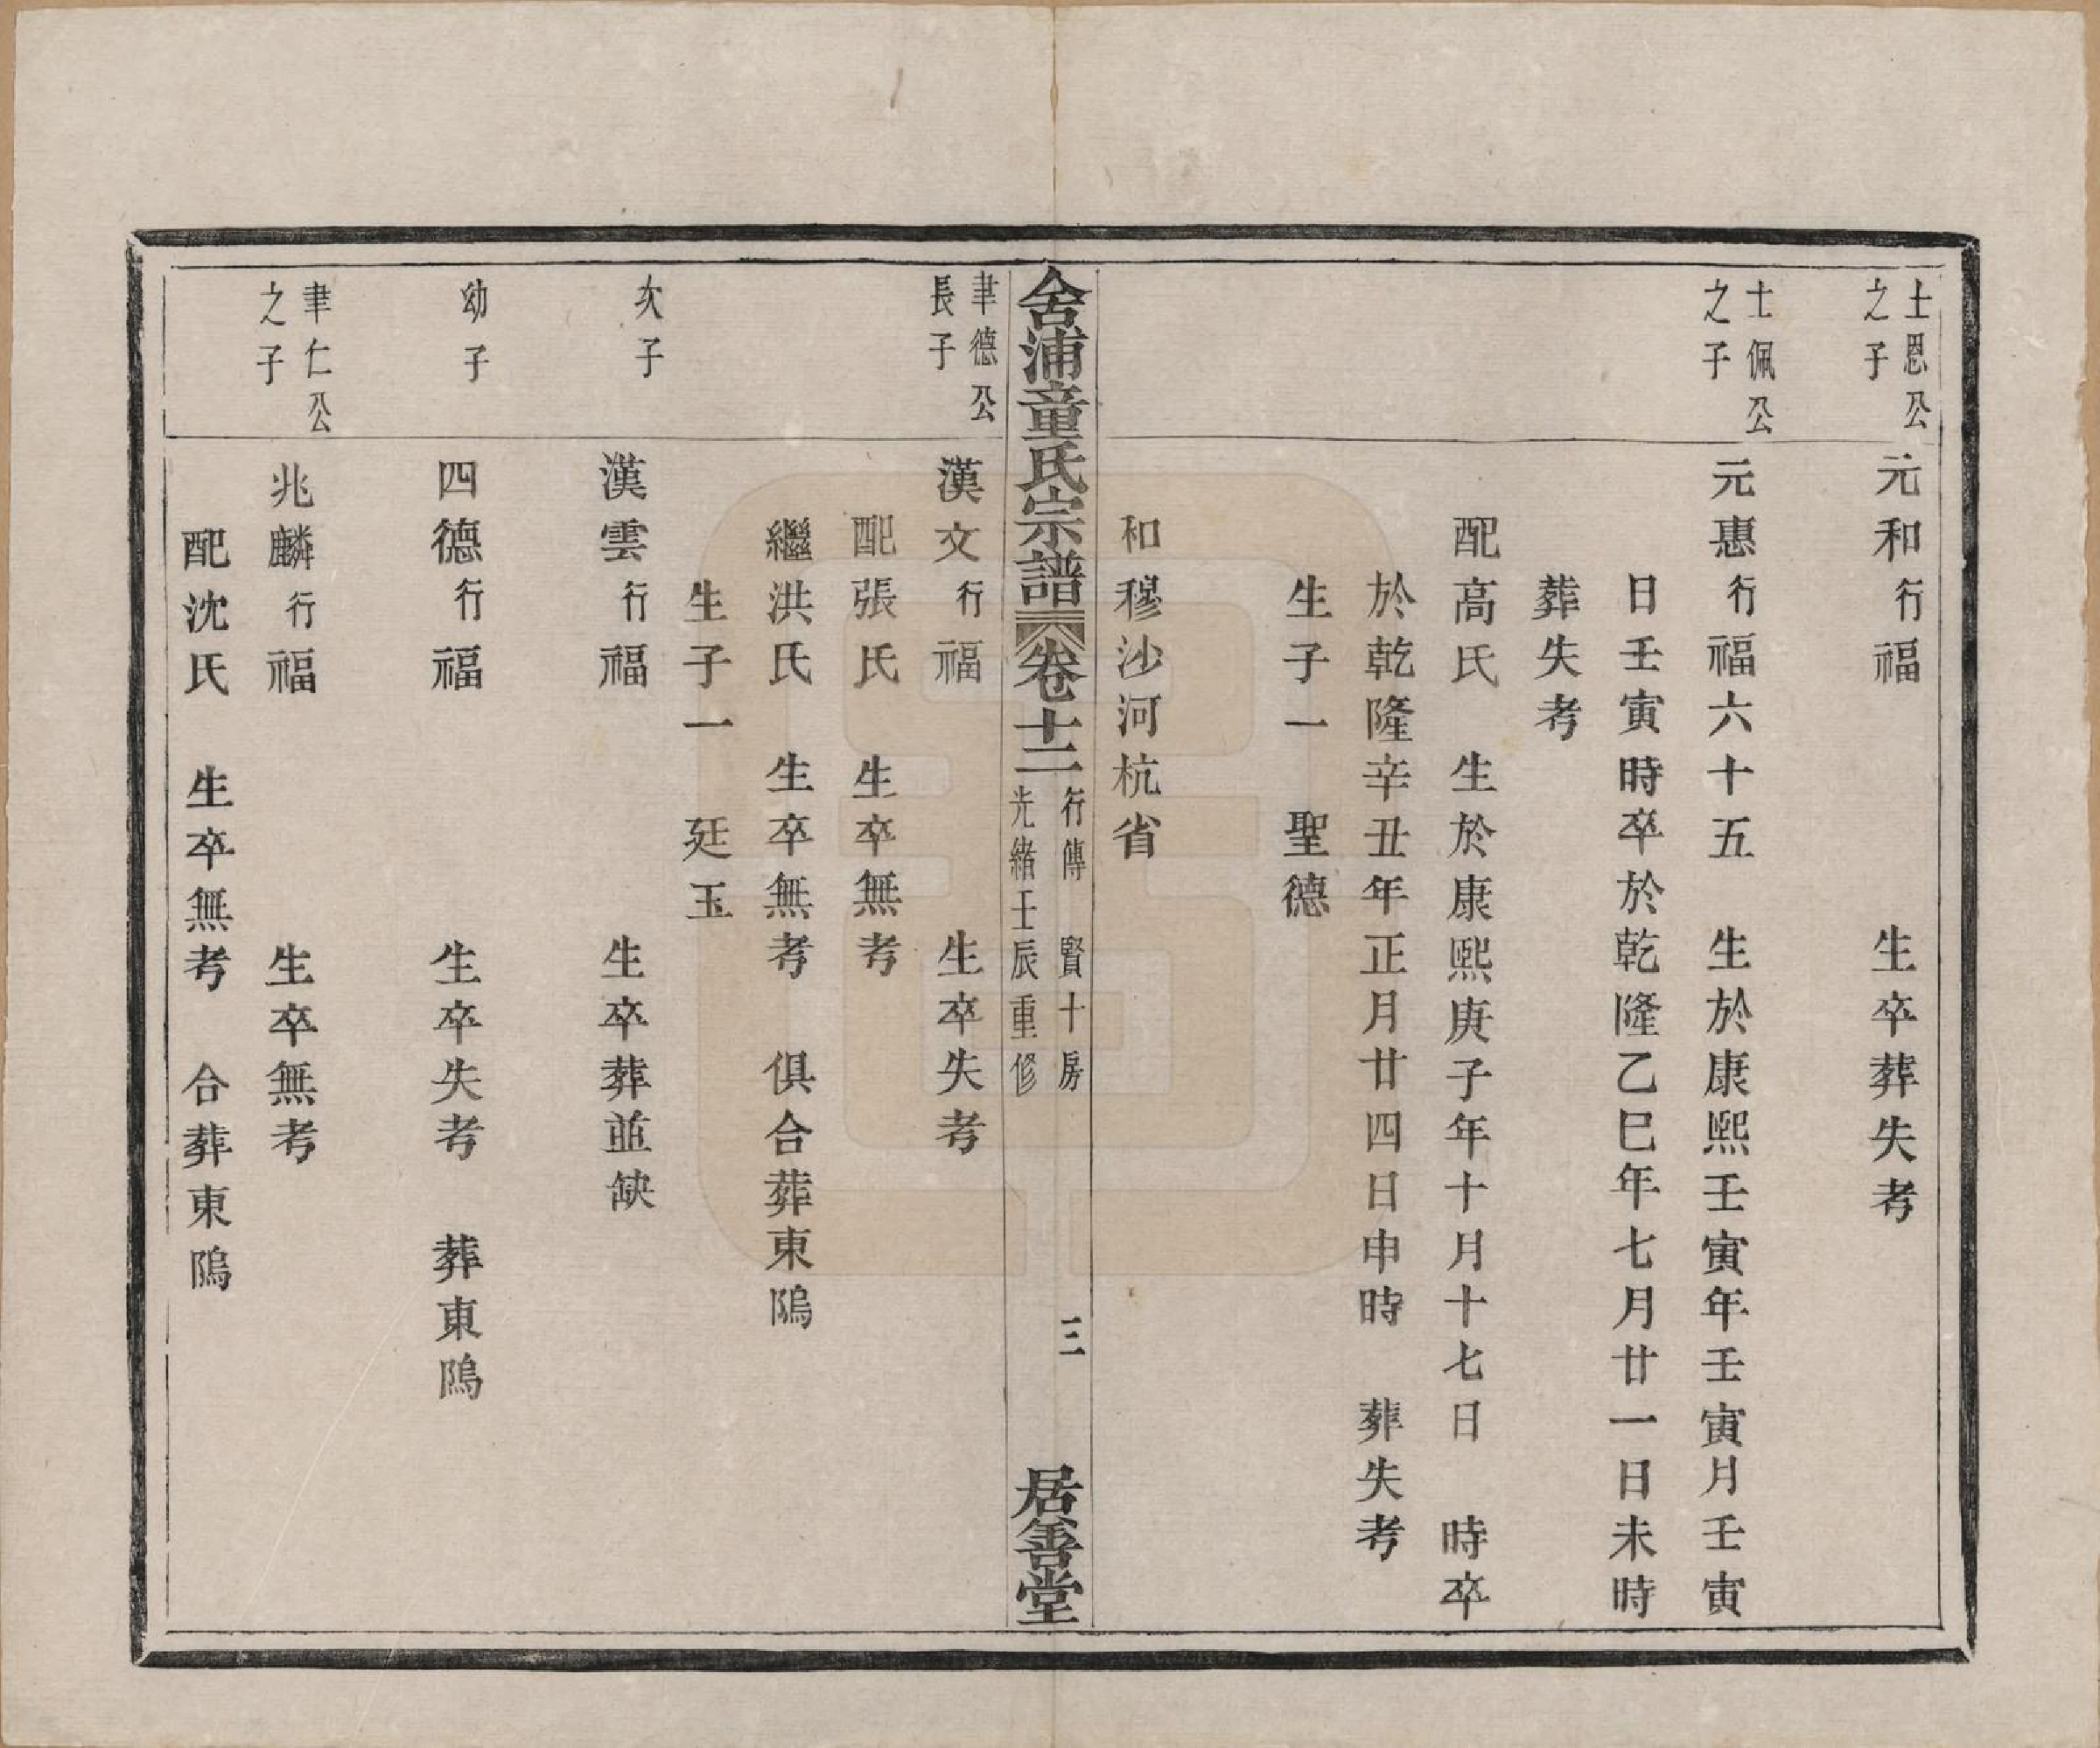 士恩公
之子
元和行福　生卒葬失考
士佩公
之子
元惠行福六十五　生於康熙壬寅年壬寅月壬寅
日壬寅時卒於乾隆乙巳年七月廿一日未時
葬失考
配高氏　生於康熙庚子年十月十七日　時卒
於乾隆辛丑年正月廿四日申時　葬失考
生子一　聖德
和穆沙河杭省
舍浦童氏宗譜　卷十二　行傳　賢十房
光緒壬辰重修
三　居善堂
聿德公
長子
漢文行福　生卒失考
配張氏　生卒無考
繼洪氏　生卒無考　俱合葬東隖
生子一　廷玉
次子
漢雲行福　生卒葬並缺
幼子
四德行福　生卒失考　葬東隖
聿仁公
之子
兆麟行福　生卒無考
配沈氏　生卒無考　合葬東隖